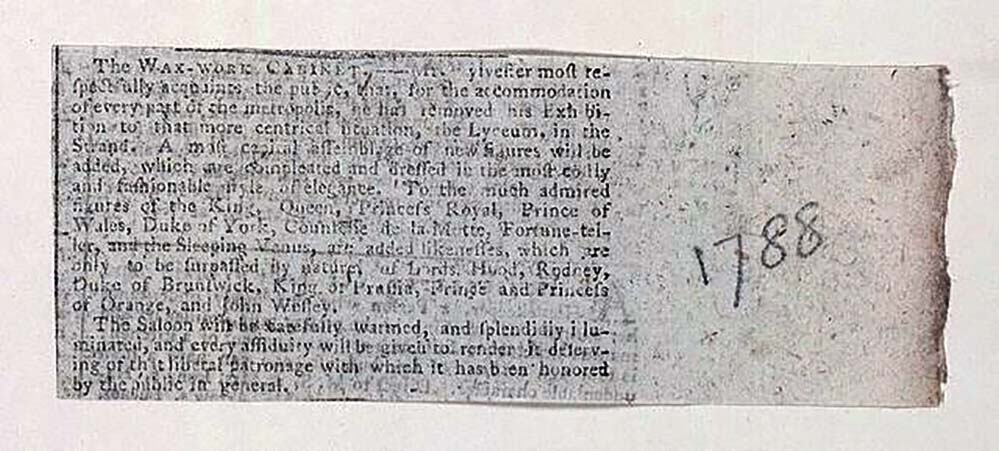 The WAX-WORK CABINET,——Mr. ylvester moſt re-
ſpectfully acquaints the public, that, for the accommodation
of every part of the metropolis, he has removed his Exhibi-
tion to that more centrical ſituation, the Lyceum, in the
Strand. A moſt capital aſſemblage of new figures will be
added, which are compleated and dreſſed in the moſt coſtly
and faſhionable ſtyle of elegance. To the much admired
figures of the King, Queen, Princeſs Royal, Prince of
Wales, Duke of York, Counteſſe de la Motte, Fortune-tel-
ler, and the Sleeping Venus, are added likeneſſes, which are
only to be ſurpaſſed by nature, of Lords Hood, Rodney,
Duke of Brunſwick, King of Pruſſia, Prince and Princeſs
of Orange, and John Weſley.
The Saloon will be carefully warmed, and ſplendidly illu-
minated, and every aſſiduity will be given to render it deſerv-
ing of that liberal patronage with which it has been honored
by the public in general.
1788